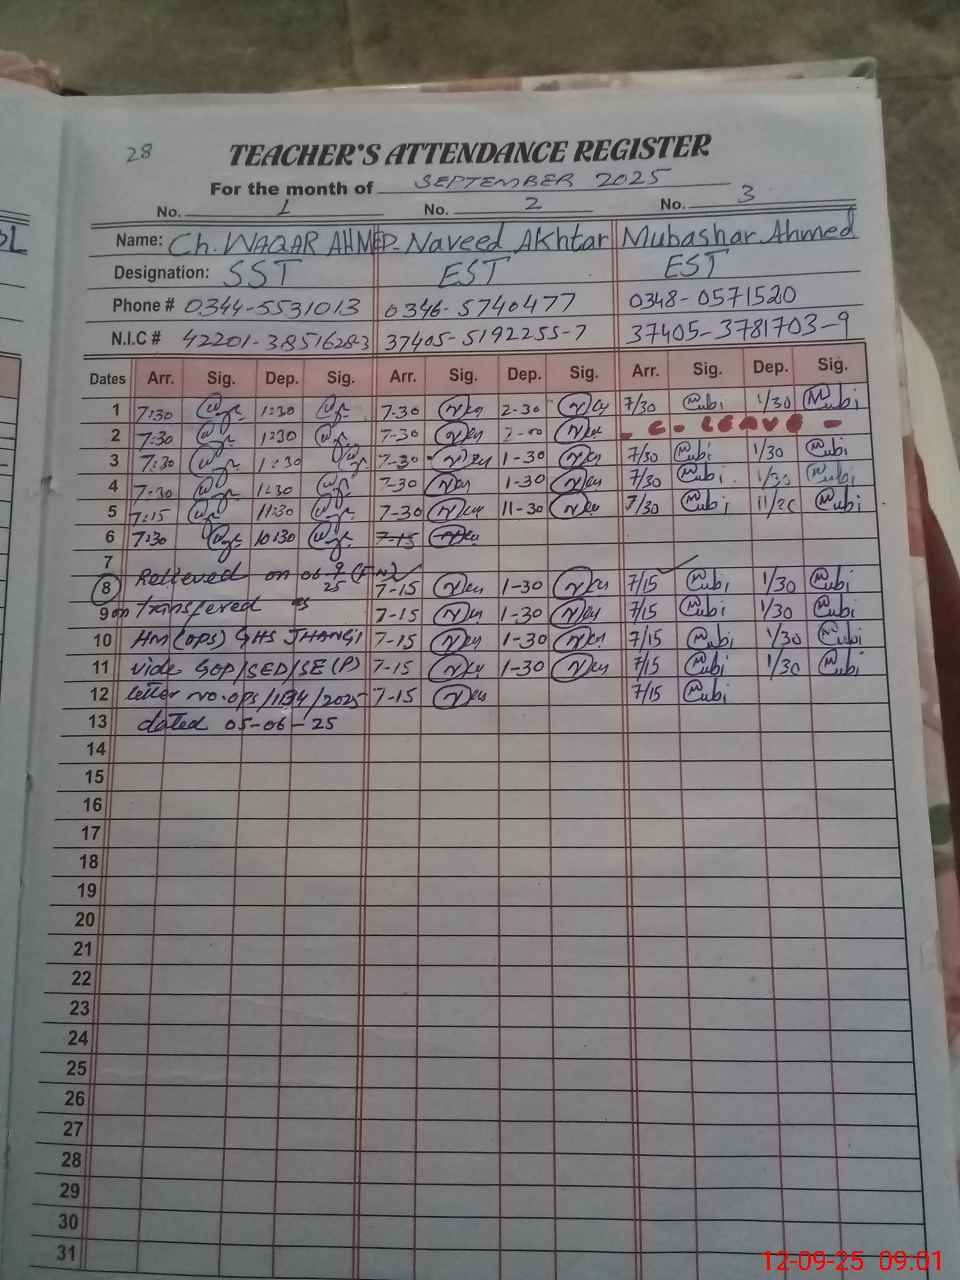 28
TEACHER'S ATTENDANCE REGISTER
For the month of SEPTEMBER 2025
No. 1 No. 2 No. 3
Name: Ch. WAQAR AHMED Naveed Akhtar Mubashar Ahmed
Designation: SST EST EST
Phone # 0344-5531013 0346-5740477 0348-0571520
N.I.C # 42201-3851628-3 37405-5192255-7 37405-3781703-9
Dates Arr. Sig. Dep. Sig. Arr. Sig. Dep. Sig. Arr. Sig. Dep. Sig.
1 7:30 1:30 7-30 2-30 7/30 Mubi 1/30 Mubi
2 7:30 1:30 7-30 - C - LEAVE -
3 7:30 1:30 7-30 1-30 7/30 Mubi 1/30 Mubi
4 7:30 1:30 7-30 1-30 7/30 Mubi 1/30 Mubi
5 7:15 11:30 7-30 11-30 7/30 Mubi Mubi
6 7:30 10:30 7-15
7
8 Relieved on 06 9/25 (F.N) 7-15 1-30 7/15 Mubi 1/30 Mubi
9 on transfered as 7-15 1-30 7/15 Mubi 1/30 Mubi
10 HM (OPS) GHS JHANGI 7-15 1-30 7/15 Mubi 1/30 Mubi
11 vide GOP/SED/SE(P) 7-15 1-30 7/15 Mubi 1/30 Mubi
12 letter no. OPS/1134/2025 7-15 7/15 Mubi
13 dated 05-06-25
14
15
16
17
18
19
20
21
22
23
24
25
26
27
28
29
30
31
12-09-25 09:01